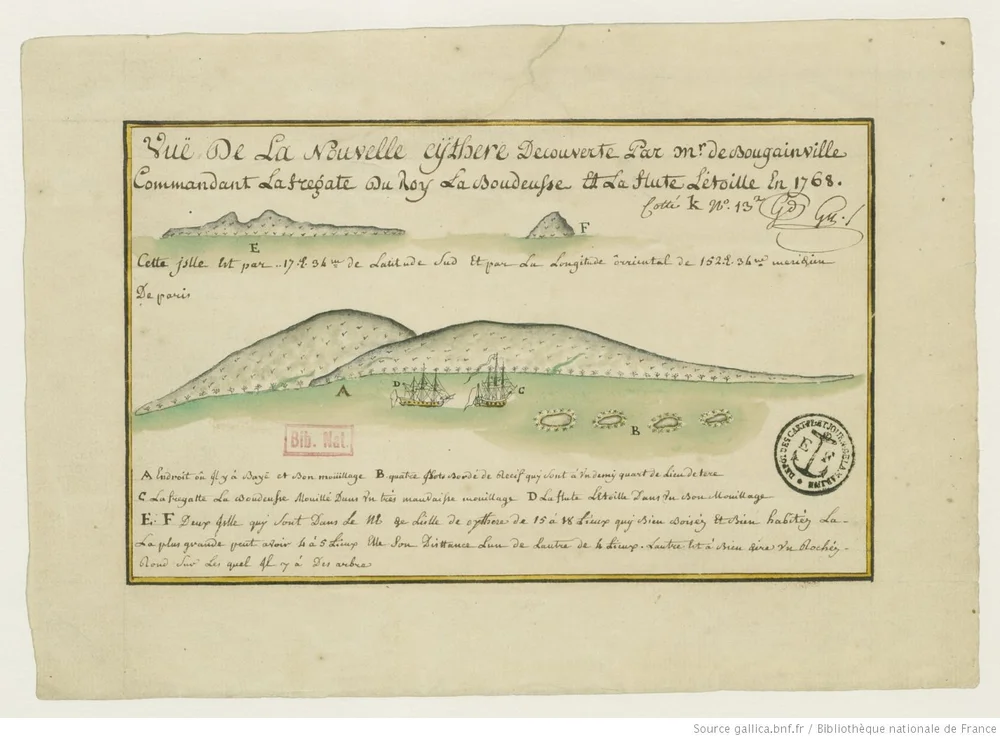 Vuë De La Nouvelle cÿthere Decouverte Par Mr. de Bougainville
Commandant La fregate Du Roy La Boudeusse Et La flute L'étoille En 1768.
Cotté k No. 13
E
F
Cette jslle Est par 17.d. 36 me de Latitude Sud Et par La Longitude orriental de 152.d. 36 me meridien
De paris
A
D
C
B
Bib. Nat.
DEPOT DES CARTES ET JOURN DE LA MARINE
A Endroit où jl y à Baye et Bon mouillage B quâtre jslots Bordé de Recif quy Sont à un demy quart de Lieu de tere
C La fregatte La Boudeusse Mouillé Dans Vn tres mauvaisse mouillage D La flute L'étoille Dans Vn Bon Mouillage
E. F Deux jslle quy Sont Dans Le de L'isle de cythere de 15 à 18 Lieux quy Bien Boisez Et Bien habitez La
La plus grande peut avoir 4 à 5 Lieux Elle Son Disttance Lun de Lautre de 4 Lieux. Lautre Est à Bien dire Vn Rochéz
Rond Sur Les quel jl y à Des arbre
Source gallica.bnf.fr / Bibliothèque nationale de France